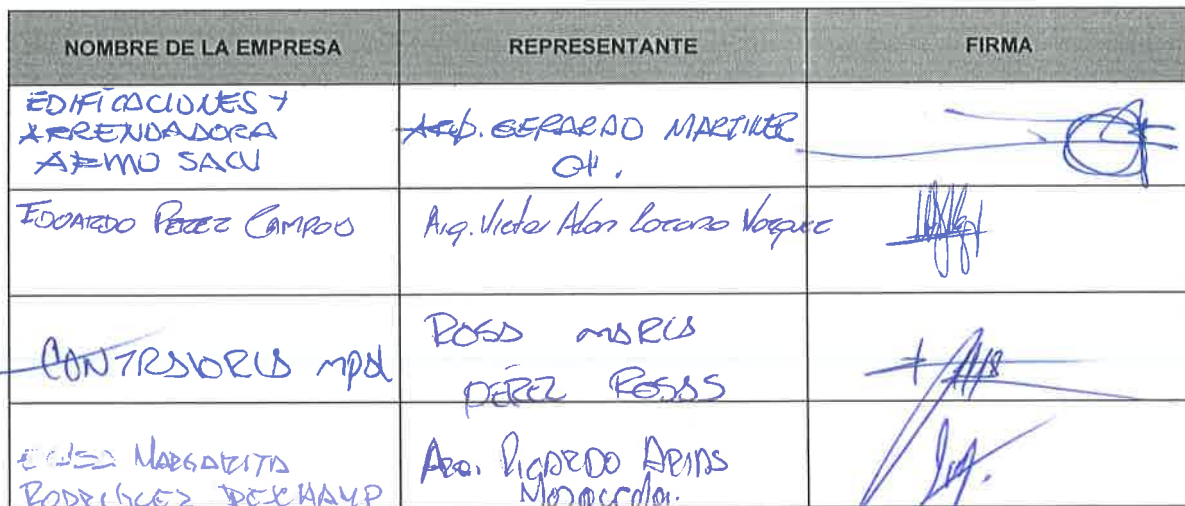 NOMBRE DE LA EMPRESA
REPRESENTANTE
FIRMA
EDIFICACIONES Y
ARRENDADORA
ARMO SACV
ARQ. GERARDO MARTINEZ
EDUARDO PEREZ CAMPOS
Arq. Victor Alan Vazquez
CONTRALORIA MPAL
ROSA MARIA
PEREZ ROSAS
MARGARITA
RODRIGUEZ DESCHAMP
ARQ. RICARDO ARIAS